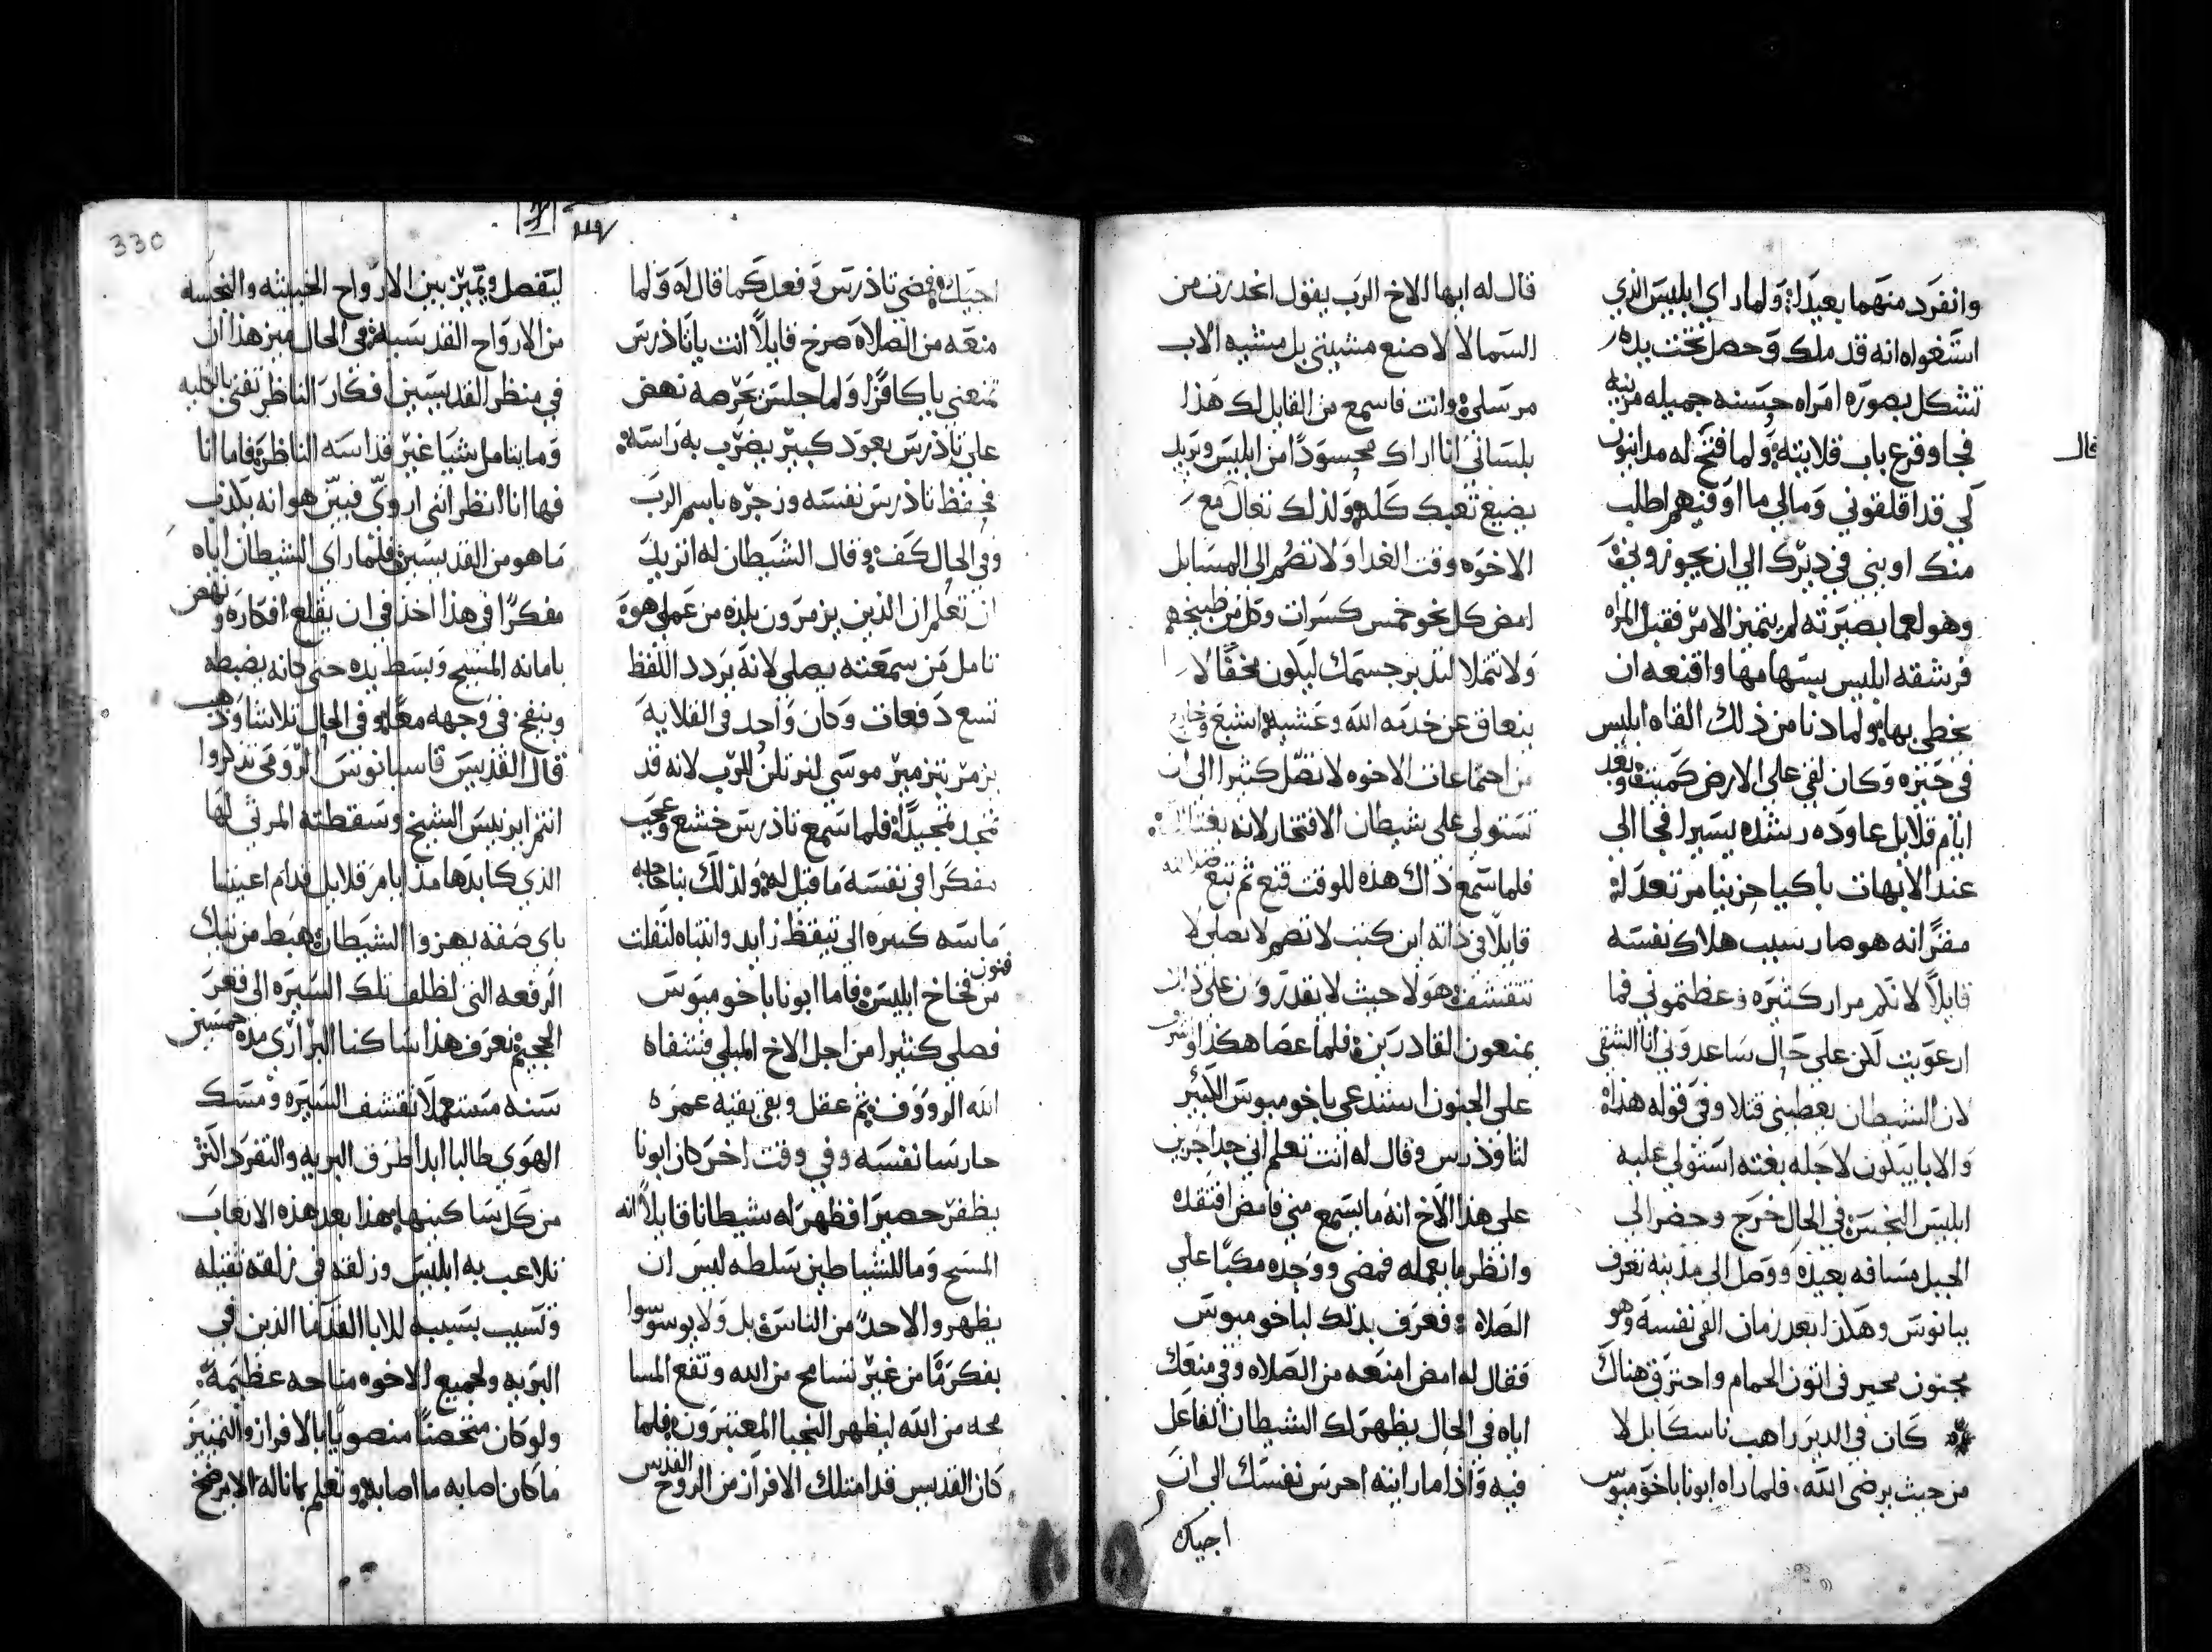 وانفرد منهما بعيدا؛ ولما راي ابليس الذي
استغواه انه قد ملك وحصل تحت يده
تشكل بصوره امراه حسنه جميله مزينه
فجا وقرع باب قلايته؛ ولما فتح له
قال
لي قد اقلقوني ومالي ما اوفيهم اطلب
منك اويني في ديرك الي ان يجوزو
وهو لعما بصيرته لم يتميز الامر فقبل المراه
فرشقه ابليس بسهامها واقنعه ان
يخطي بها؛ ولما دنا من ذلك القاه ابليس
في حنزه وكان لقي علي الارض كميت؛ وبعد
ايام قلايل عاوده رشده يسير فجا الي
عند الابهات باكيا حزينا مرتعد له
مقرًا انه هو صار سبب هلاك نفسه
قايلاً لانكم مرار كثيره وعظتموني فما
ارعويت لكن علي حال ساعدوني انا الشقي
لان الشيطان يعطيني قتلا وفي قوله هذا؛
والابا يبكون لاجله بغته استولي عليه
ابليس النجس؛ في الحال خرج وحضر الي
الجبل مسافه بعيده ووصل الي مدينه تعرف
ببانوس وهكذا بعد زمان القي نفسه وهو
مجنون محير في اتون الحمام واحترق هناك
كان في الدير راهب ناسكا بل لا
من حيث يرضي الله؛ فلما راه ابونا باخوميوس
قال له ايها الاخ الرب يقول انحدرت من
السما لا لاصنع مشيتي بل مشيه الاب
مرسلي؛ وانت فاسمع من القايل لك هذا
بلساني انا اراك محسودًا من ابليس ويريد
يضيع تعبك كله؛ ولذلك تعال مع
الاخوه وقت الغدا ولا تصم الي المسا بل
امض كل نحو خمس كسرات وكل من طبيخهم
ولا تتملا لتدبر جسمك ليكون مخفًا لا
يتعاق عن خدمه الله وعشيه اشبع
من اجتماعات الاخوه لا تصل كثيرا الي ان
تستولي علي شيطان الافتخار لانه
فلما سمع ذاك هذه للوقت قنع ثم تبع
قايلاً في ذاته اين كتب لا تصم لا تصلي لا
تتقشف؛ هولا حيث لا يقدرون علي ذلك
يمنعون القادرين؛ فلما عصا هكذا
علي الجنون استدعي باخوميوس الكبير
لتاوذرس وقال له انت تعلم اني جدا حزين
علي هذا الاخ انه ما يسمع مني فامض افتقده
وانظر ما يعمله فمضي ووجده مكبًا علي
الصلاه؛ فعرف بذلك لباخوميوس
فقال له امض امنعه من الصلاه وفي منعك
اياه في الحال يظهر لك الشيطان الفاعل
فيه واذا ما رايته احرس نفسك الي ان
اجيك
330
اجيك؛ فمضي تاذرس وفعل كما قال له ولما
منعه من الصلاه صرخ قايلاً انت يا تاذرس
تمنعني يا كافرًا ولما جلس نهض
علي تاذرس بعود كبير يضرب به راسه؛
فحفظ تاذرس نفسه وزجره باسم الرب
وفي الحال كف؛ وقال الشيطان له اتريد
ان تعلم ان الذين يزمرون بلذه من عملي هو؛
تامل من سمعته يصلي لانه يردد اللفظ
تسع دفعات وكان واحد في القلايه
يزمر بتزمير موسي لنرتلن للرب لانه قد
تمجد تمجيدًا؛ فلما سمع تاذرس خشع وعجب
مفكرا في نفسه ما قيل له؛ ولذلك بنا حاجه
ماسه كبيره الي تيقظ زايد وانتباه لنفلت
من فخاخ ابليس؛ فاما ابونا باخوميوس
فنون
فصلي كثيرا من اجل الاخ المبلي فشفاه
الله الرووف ثم عقل وبقي بقيه عمره
حارسا نفسه وفي وقت اخر كان ابونا
يظفر حصيرا فظهر له شيطانا قايلاً انه
المسيح وما للشياطين سلطه ليس ان
يظهروا لاحدًا من الناس؛ بل ولا يوسوسوا
بفكر ما من غير تسامح من الله وتقع المسا
محه من الله ليظهر النجبا المعتبرون؛ فلما
كان القديس قد امتلك الافراز من الروح القدس
ليفصل ويميز بين الارواح الخبيثه والنجسه
من الارواح القدسيه؛ في الحال ميز هذا ان
في منظر القديسين فكار الناظر تفني بالكليه
وما يتامل شيا غير قداسه الناظره؛ فاما انا
فها انا انظر انني اروي فبين هو انه يكذب
ما هو من القديسين؛ فلما راي الشيطان اياه
مفكرًا في هذا اخذ في ان يقلع افكاره؛ ونهض
بامانه المسيح وبسط يده حتي كانه يضبطه
وينفخ في وجهه معًا؛ وفي الحال تلاشا وذهب
قال القديس قاسيانوس الرومي تذكروا
انتم ايرنيس الشيخ وسقطته المرثي لها
الذي كابدها مذ ايام قلايل قدام اعيننا
باي صفه يهزوا الشيطان؛ هبط من تيك
الرفعه التي لظلف تلك السيره الي قعر
الجحيم؛ نعرف هذا ساكنا البراري مده خمسين
سنه مستعملا تقشف السيره ومسك
الهوي طالبا ابدا طرق البريه والتفرد اكثر
من كل ساكنيها؛ هذا بعد هذه الاتعاب
تلاعب به ابليس وزلقه في زلقه ثقيله
وتسبب بسببه للابا القدما الذين في
البريه ولجميع الاخوه مناحه عظيمه؛
ولو كان متحصنًا منصوبا بالافراز والتمييز
ما كان اصابه ما اصابه؛ ونعلم